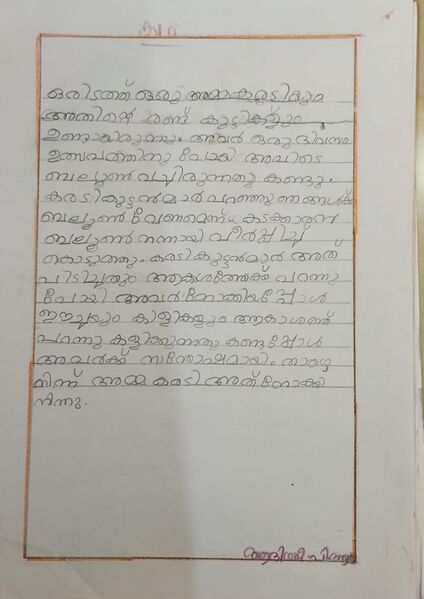 കഥ
ഒരിടത്ത് ഒരു അമ്മകരടിയും
അതിന്റെ രണ്ട് കുട്ടികളും
ഉണ്ടായിരുന്നു. അവർ ഒരു ദിവസം
ഉത്സവത്തിനു പോയി അവിടെ
ബലൂൺ വച്ചിരുന്നതു കണ്ടു.
കരടികുട്ടൻമാർ പറഞ്ഞു ഞങ്ങൾക്ക്
ബലൂൺ വേണമെന്ന് കടക്കാരൻ
ബലൂൺ നന്നായി വീർപ്പിച്ച്
കൊടുത്തു. കരടികുട്ടൻമാർ അത്
പിടിച്ചതും ആകാശത്തേക്ക് പറന്നു
പോയി അവർ നോക്കിയപ്പോൾ
ഈച്ചയും കിളികളും ആകാശത്ത്
പറന്നു കളിക്കുന്നതു കണ്ടപ്പോൾ
അവർക്ക് സന്തോഷമായി. താഴെ
നിന്ന് അമ്മ കരടി അത് നോക്കി
നിന്നു.